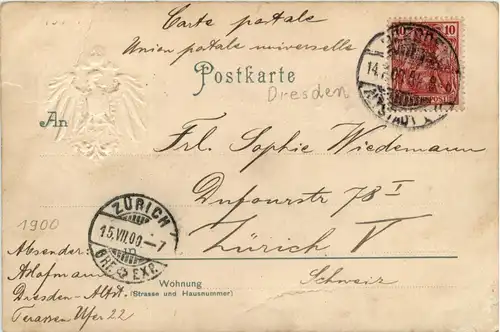 Carte postale
Union postale universelle
Postkarte
Dresden
10 10
DRESDEN
ALTSTADT
An
Frl. Sophie Wiedemann
Dufourstr 78 I
Zürich V
Schweiz
ZÜRICH 1
15.VII.00.-7
BRF. EXP.
in
1900
Absender:
Dresden-Altst.
Terassen Ufer 22
Wohnung
(Strasse und Hausnummer)